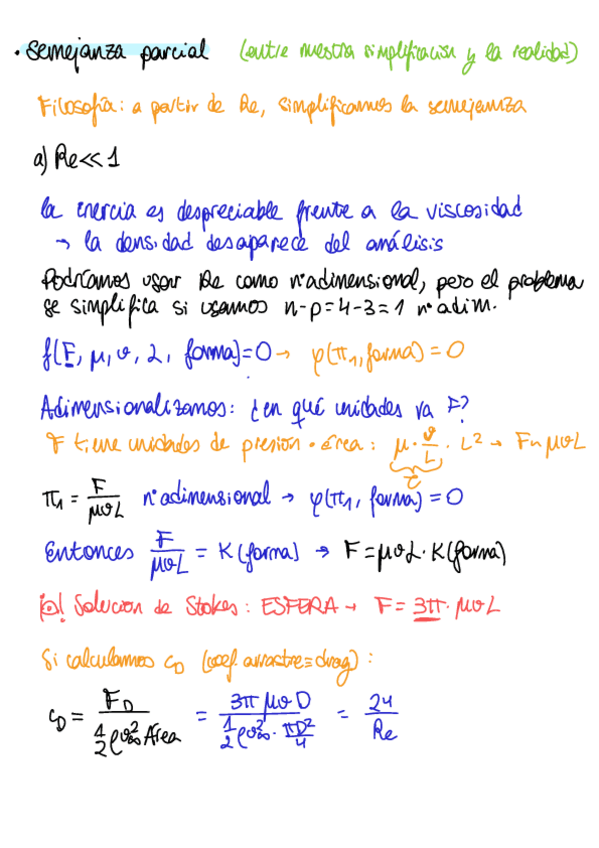 · Semejanza parcial (entre nuestra simplificación y la realidad)
Filosofía: a partir de Re, simplificamos la semejanza
a) Re<<1
la inercia es despreciable frente a la viscosidad
→ la densidad desaparece del análisis
Podríamos usar Re como nº adimensional, pero el problema
se simplifica si usamos n-p=4-3=1 nº adim.
f(F, μ, v, L, forma)=0 → φ(π₁, forma) = 0
Adimensionalizamos: ¿en qué unidades va F?
F tiene unidades de presión · área: μ · v/L · L² → F~μvL
τ
π₁ = F/μvL nº adimensional → φ(π₁, forma) = 0
Entonces F/μvL = K(forma) → F = μvL · K(forma)
¡o! Solución de Stokes: ESFERA → F = 3π · μvL
Si calculamos c_D (coef. arrastre≡drag):
c_D = F_D / (1/2 ρv²∞ Área) = 3π μv D / (1/2 ρv²∞ · πD²/4) = 24/Re